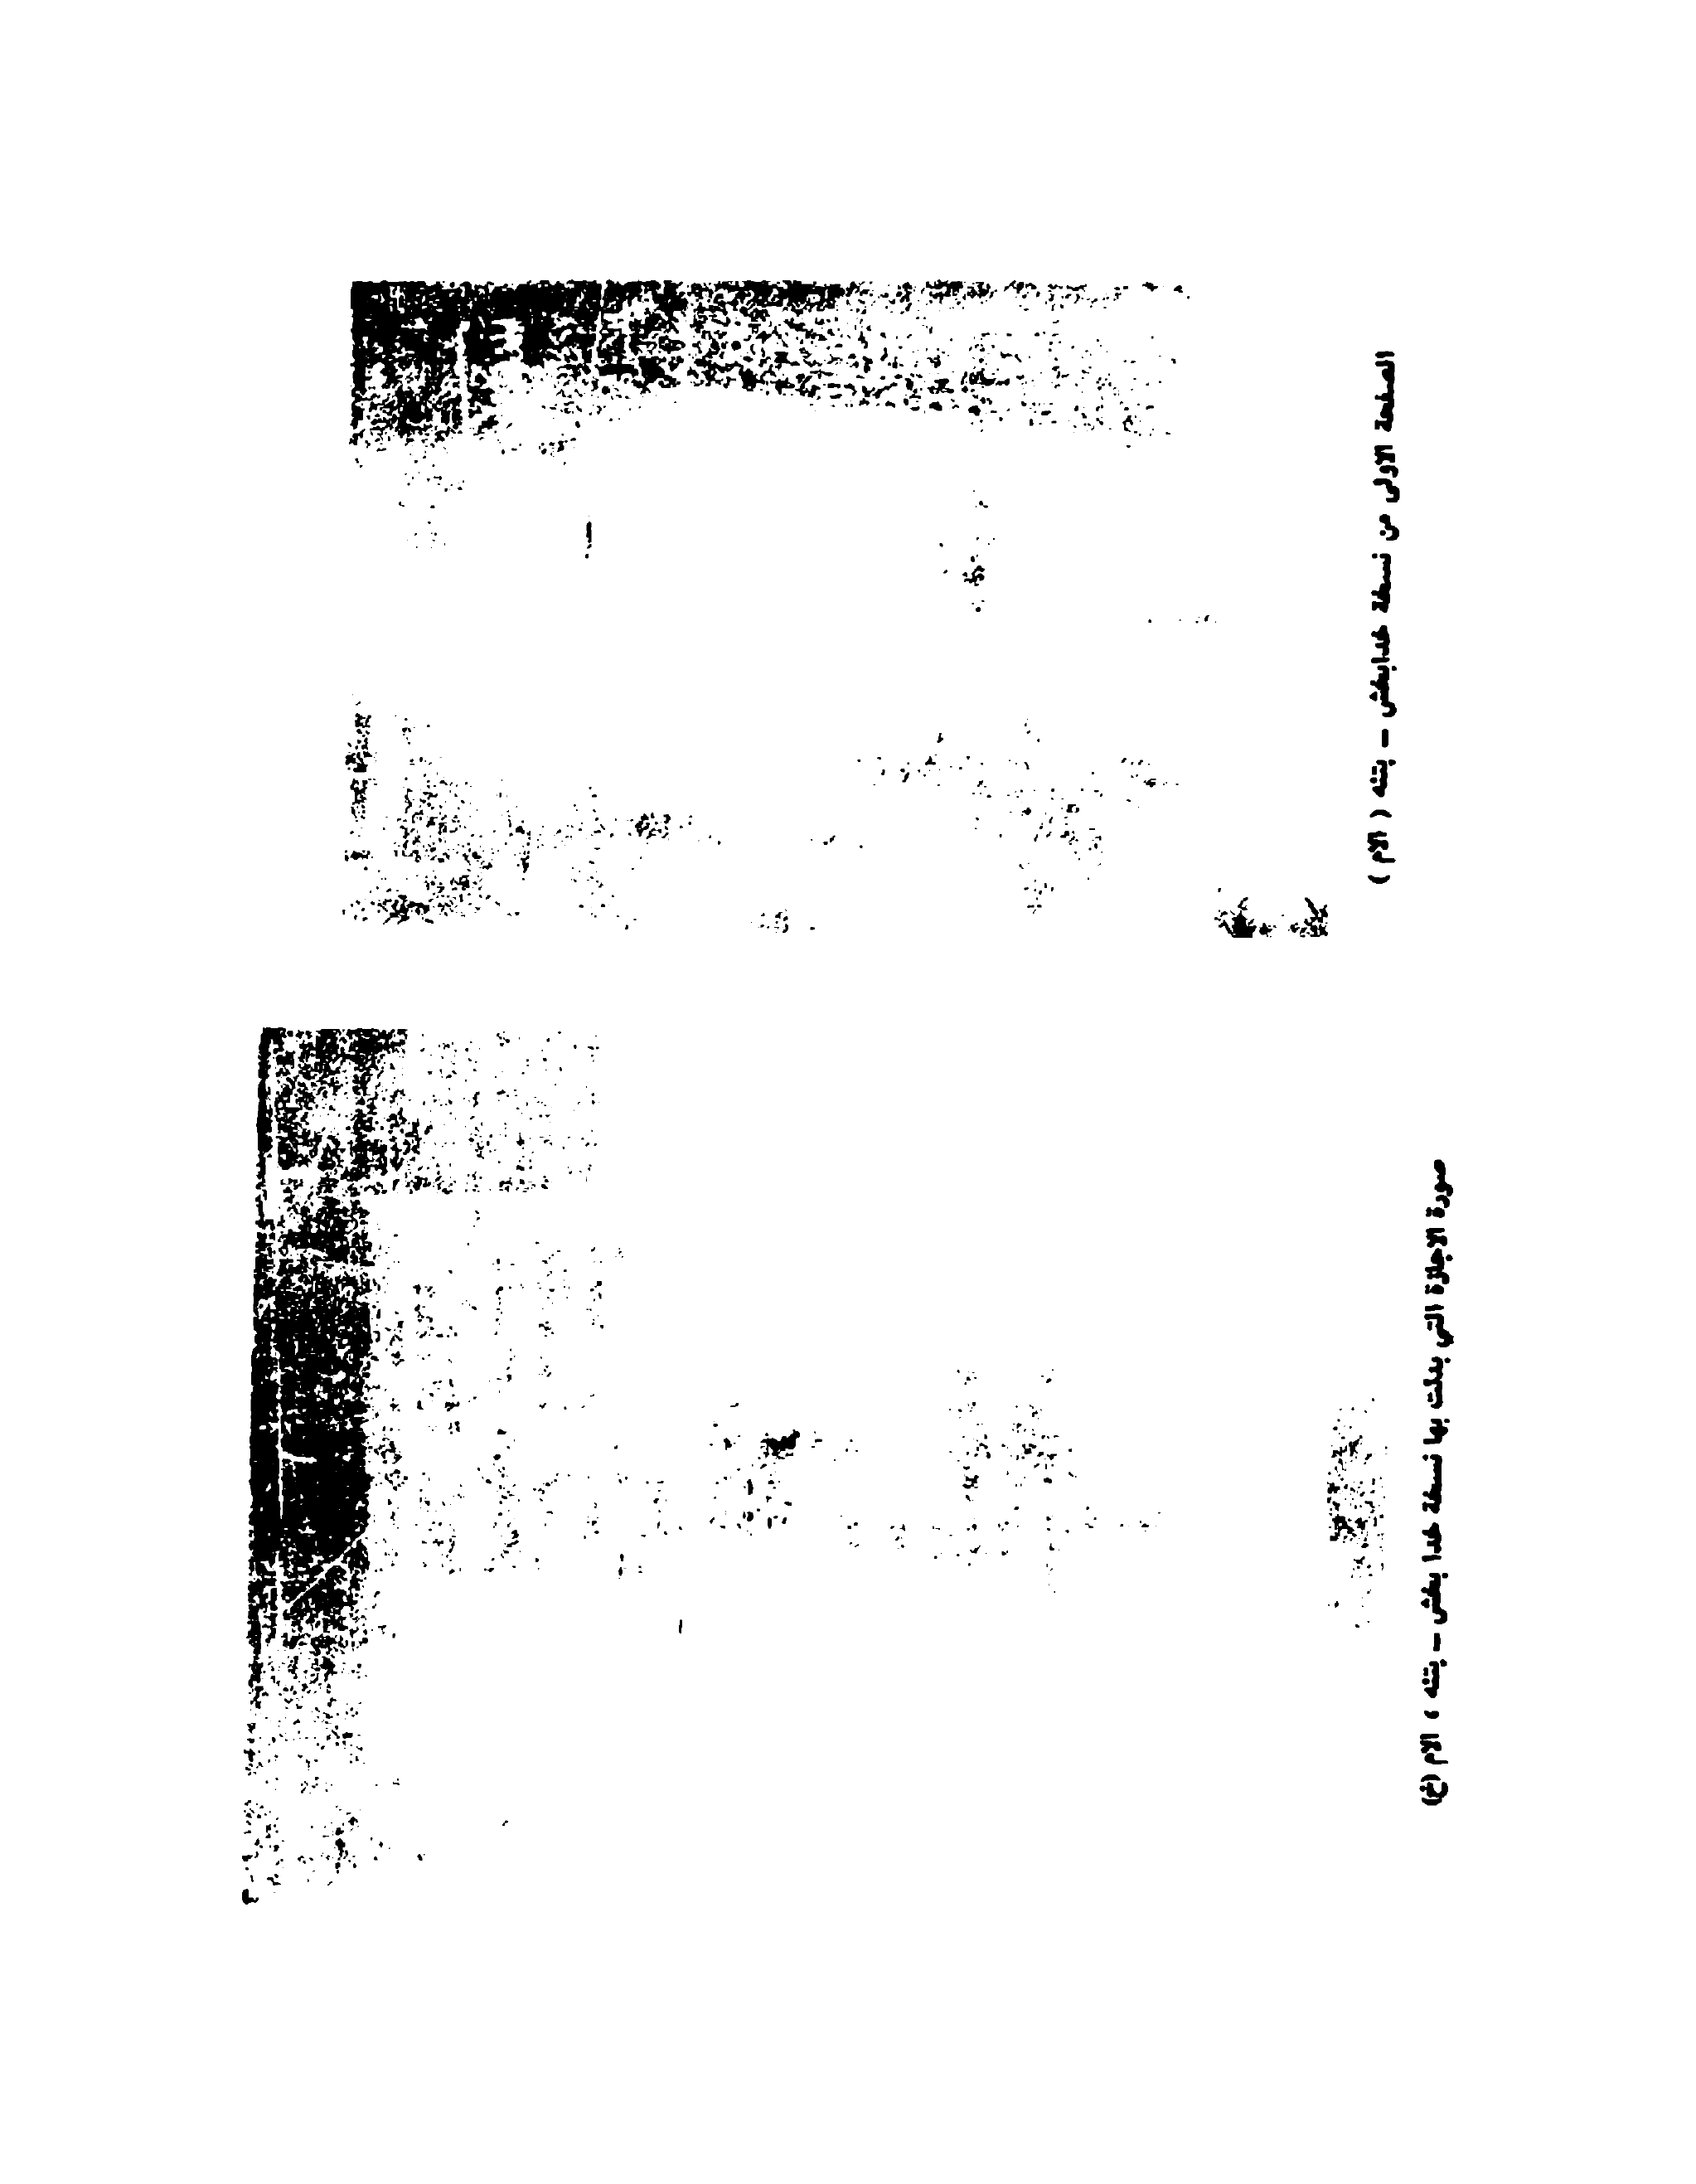 الصفحة الاولى من نسخة خدابخش - بتنه ( الام )
صورة الاجازة التي بدئت بها نسخة خدا بخش - بتنه ، الام (خ)